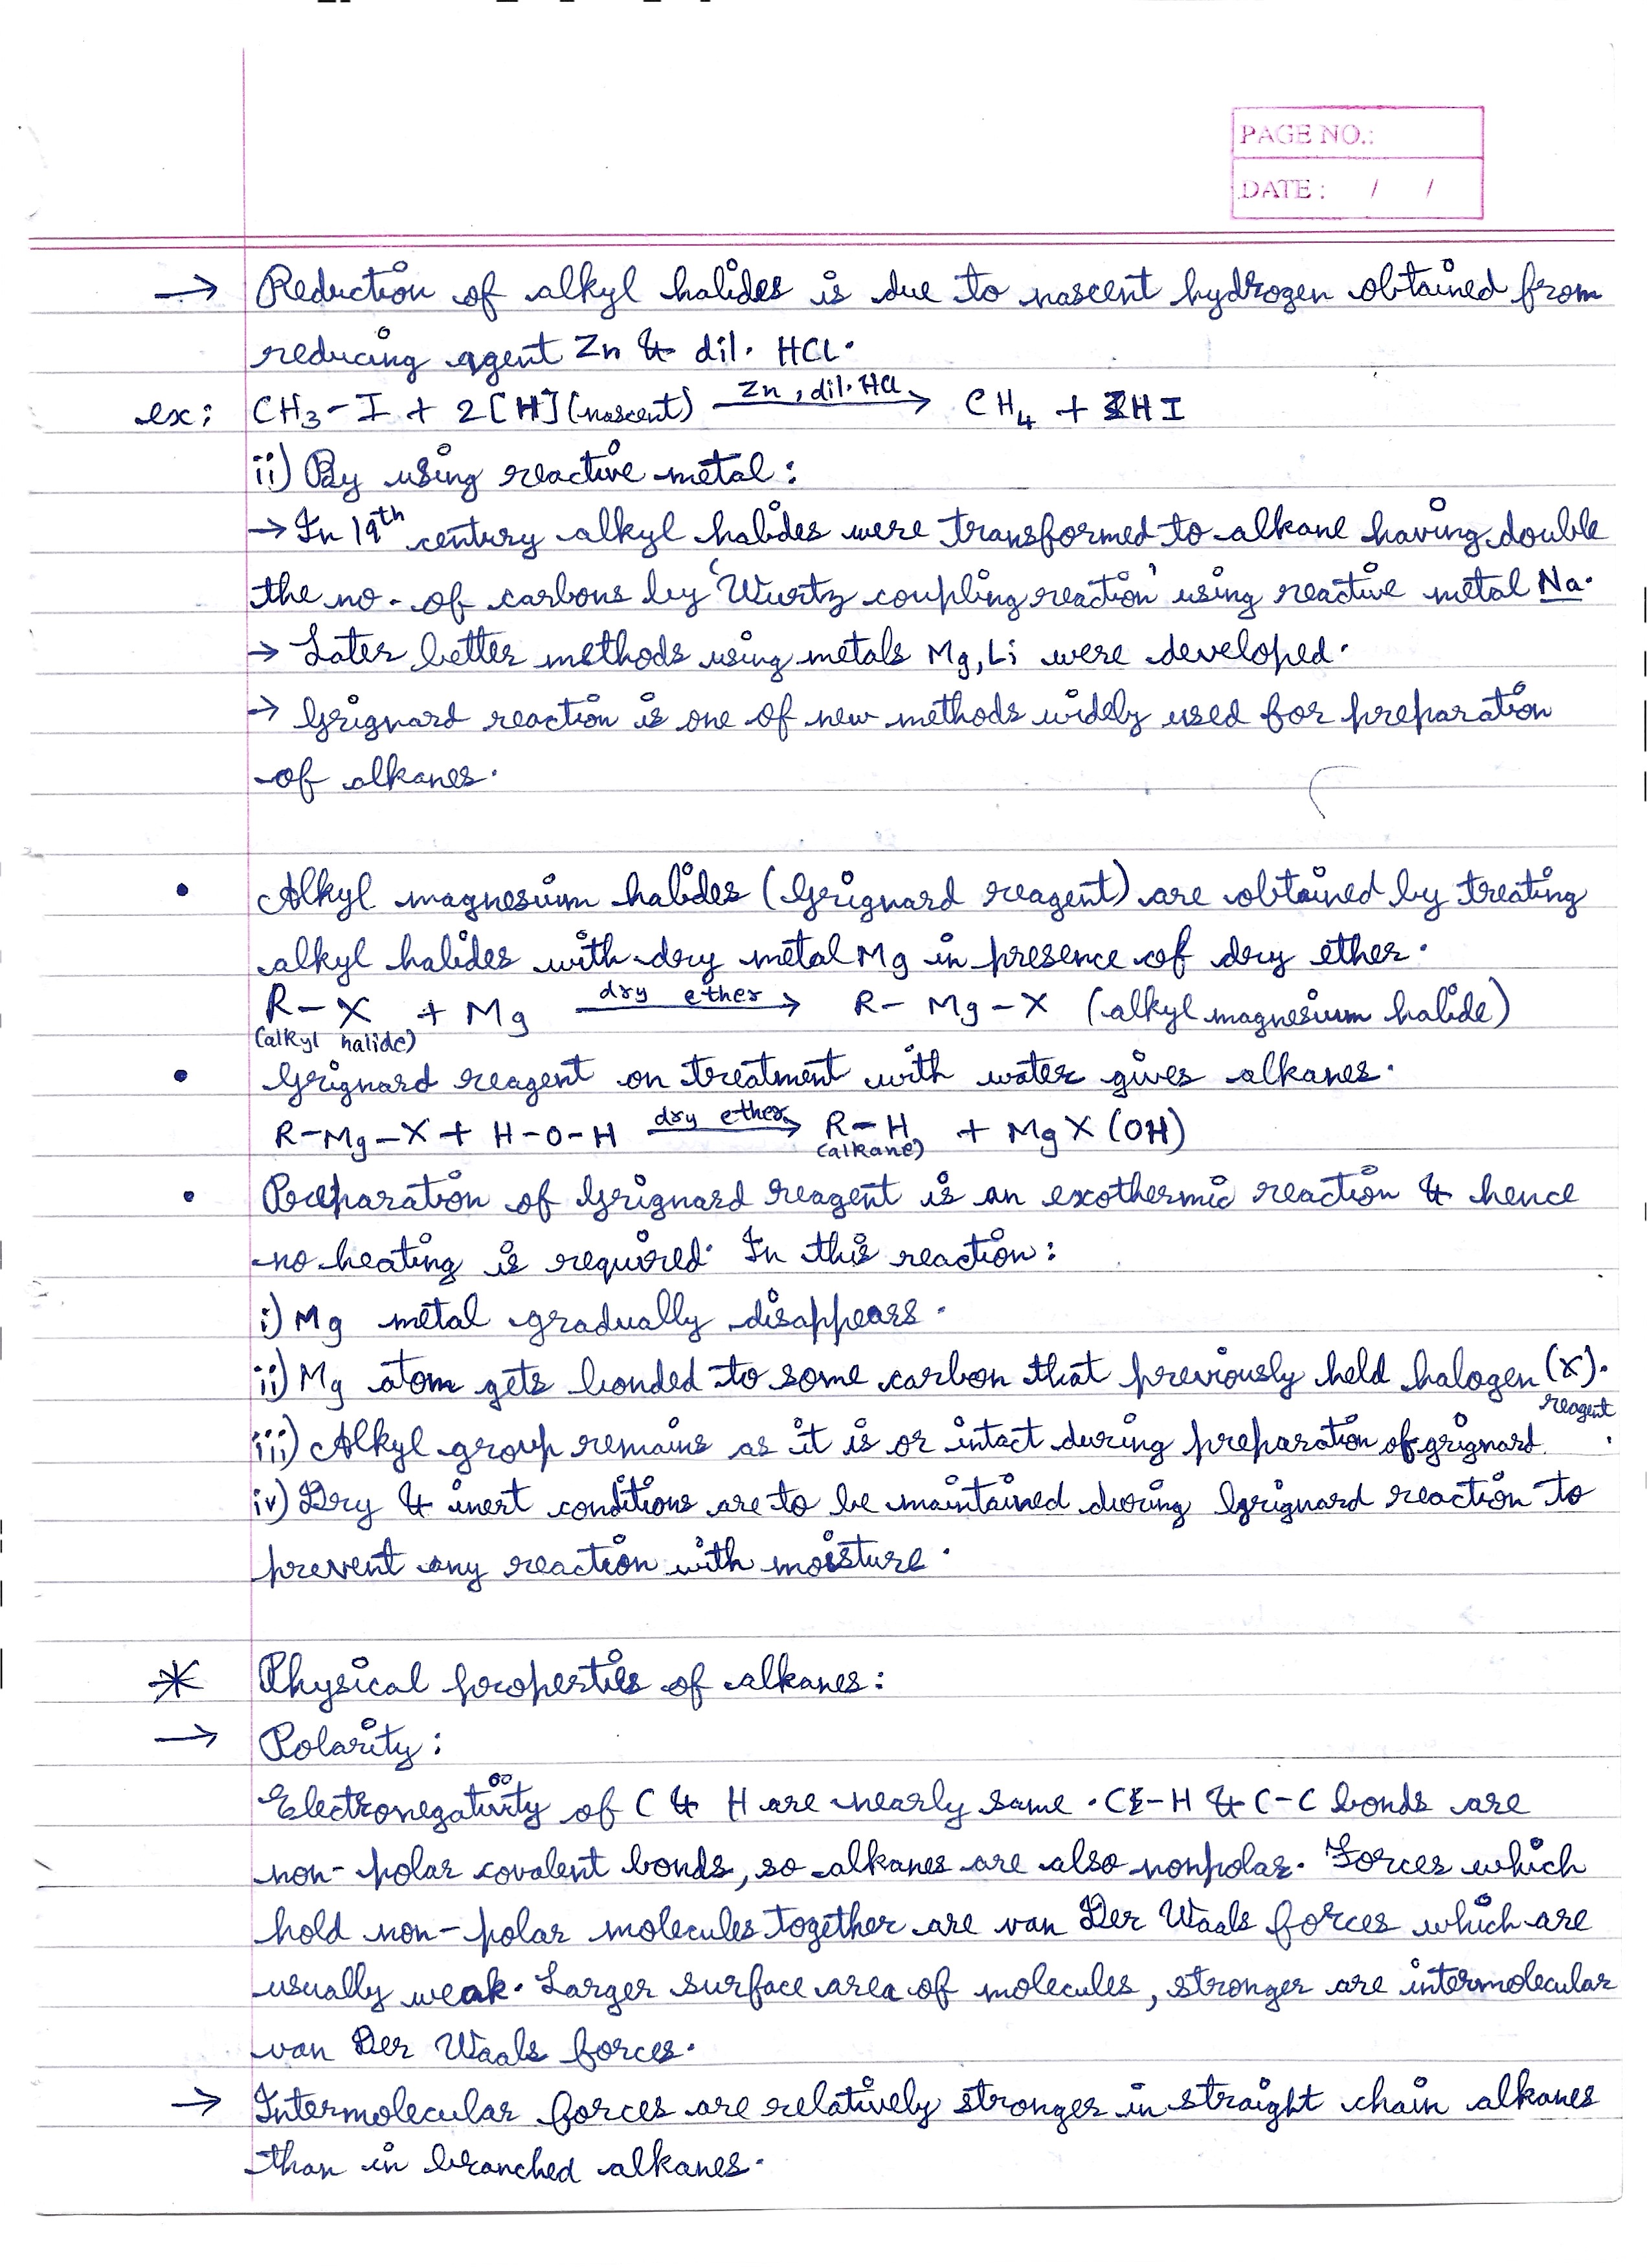 PAGE NO.:
DATE : / /
→ Reduction of alkyl halides is due to nascent hydrogen obtained from
reducing agent Zn & dil. HCl.
ex: CH₃-I + 2[H](nascent) —Zn, dil. HCl→ CH₄ + HI
ii) By using reactive metal:
→ In 19th century alkyl halides were transformed to alkane having double
the no. of carbons by 'Wurtz coupling reaction' using reactive metal Na.
→ Later better methods using metals Mg, Li were developed.
→ Grignard reaction is one of new methods widely used for preparation
of alkanes.
• Alkyl magnesium halides (Grignard reagent) are obtained by treating
alkyl halides with dry metal Mg in presence of dry ether.
R-X + Mg —dry ether→ R-Mg-X (alkyl magnesium halide)
(alkyl halide)
• Grignard reagent on treatment with water gives alkanes.
R-Mg-X + H-O-H —dry ether→ R-H + MgX(OH)
(alkane)
• Preparation of Grignard reagent is an exothermic reaction & hence
no heating is required. In this reaction:
i) Mg metal gradually disappears.
ii) Mg atom gets bonded to some carbon that previously held halogen (X).
iii) Alkyl group remains as it is or intact during preparation of grignard reagent.
iv) Dry & inert conditions are to be maintained during Grignard reaction to
prevent any reaction with moisture.
* Physical properties of alkanes:
→ Polarity:
Electronegativity of C & H are nearly same. C-H & C-C bonds are
non-polar covalent bonds, so alkanes are also nonpolar. Forces which
hold non-polar molecules together are van Der Waals forces which are
usually weak. Larger surface area of molecules, stronger are intermolecular
van Der Waals forces.
→ Intermolecular forces are relatively stronger in straight chain alkanes
than in branched alkanes.